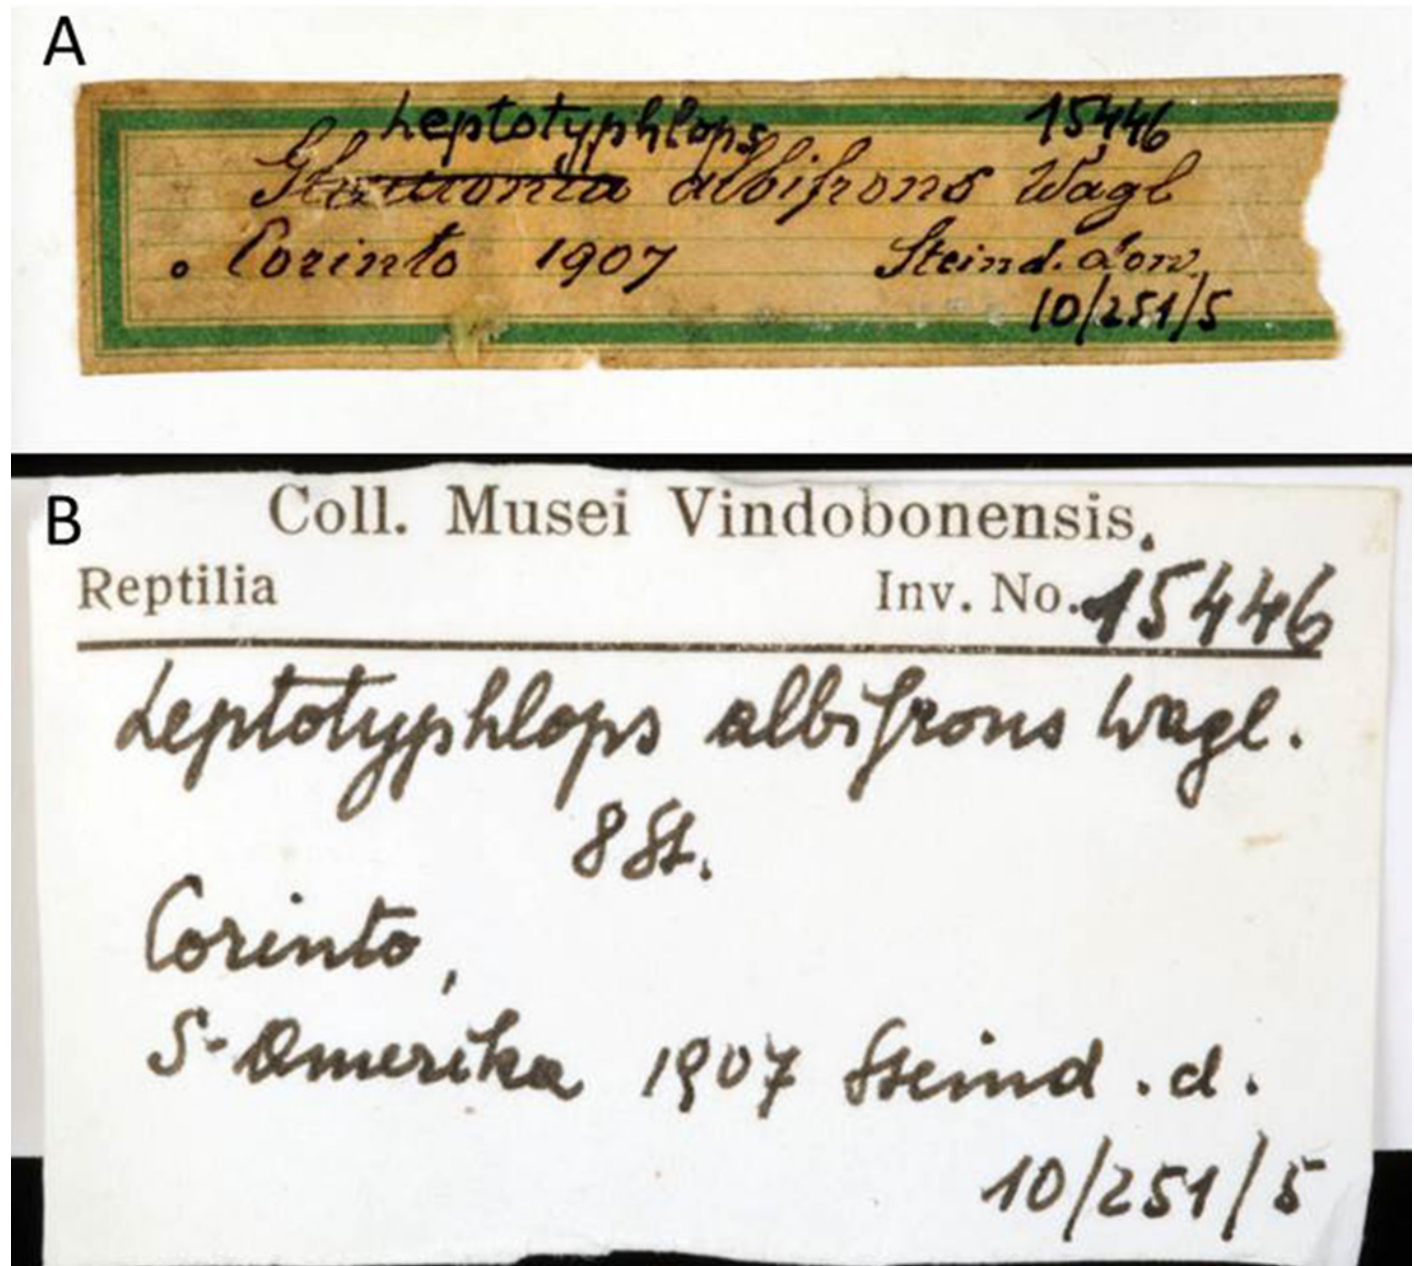 A
Leptotyphlops 15446
albifrons Wagl
Corinto 1907 Steind. don.
10/251/5
B
Coll. Musei Vindobonensis.
Reptilia Inv. No. 15446
Leptotyphlops albifrons Wagl.
8 St.
Corinto,
S-Amerika 1907 Steind. d.
10/251/5